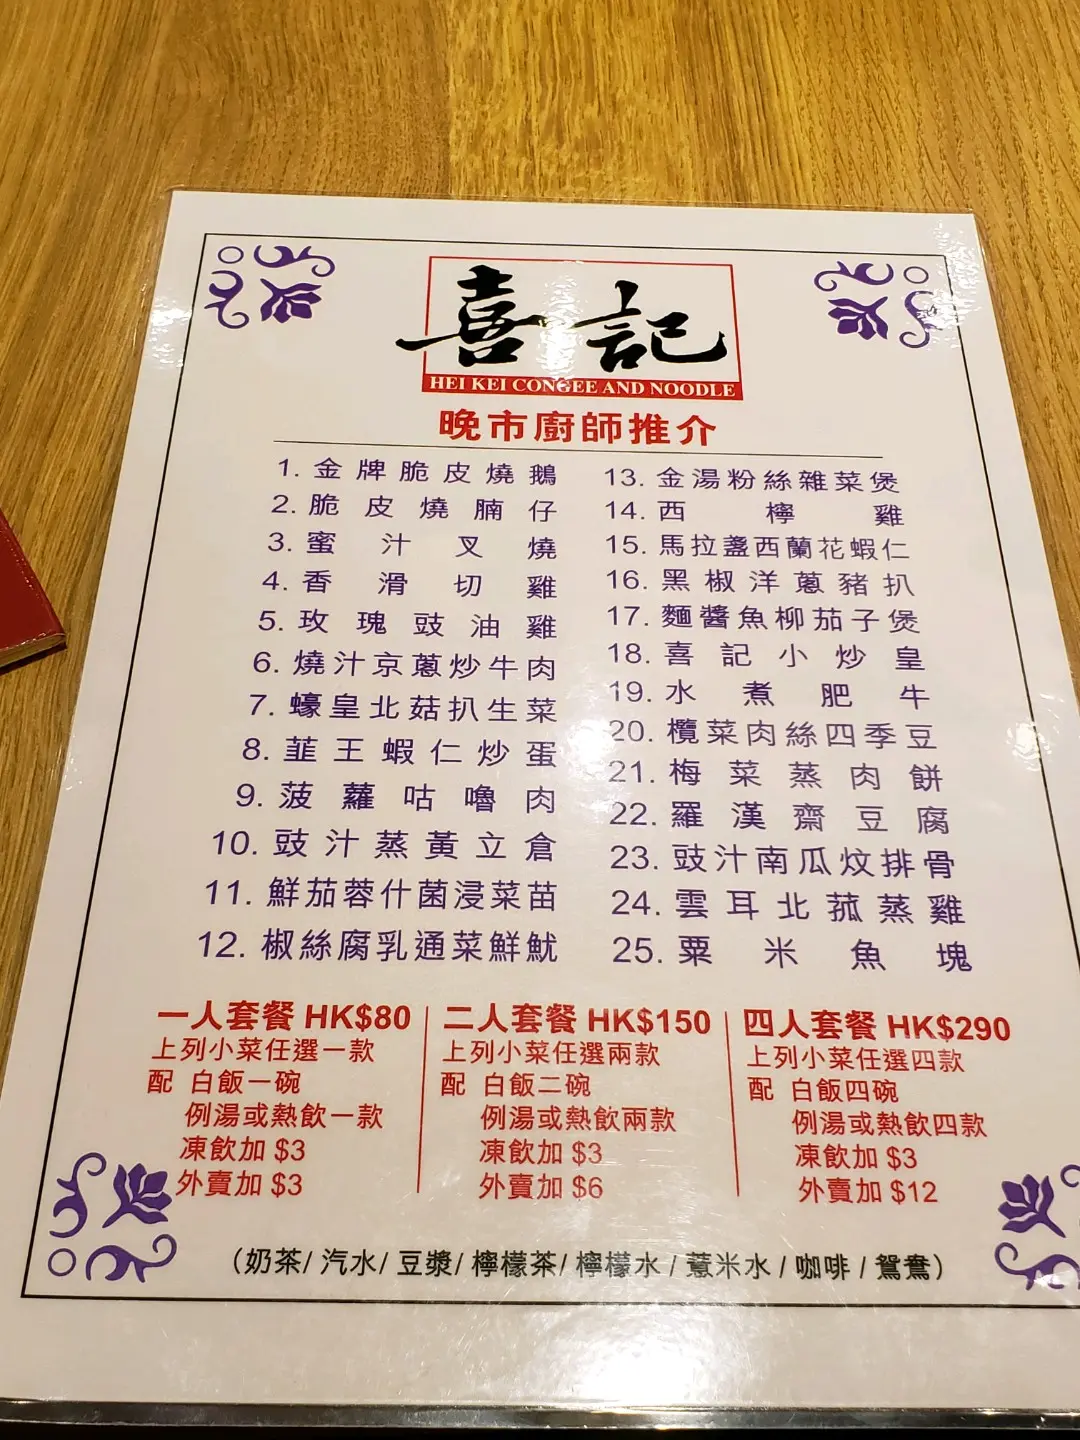 喜記
HEI KEI CONGEE AND NOODLE
晚市廚師推介
1. 金牌脆皮燒鵝
2. 脆皮燒腩仔
3. 蜜汁叉燒
4. 香滑切雞
5. 玫瑰豉油雞
6. 燒汁京蔥炒牛肉
7. 蠔皇北菇扒生菜
8. 韮王蝦仁炒蛋
9. 菠蘿咕嚕肉
10. 豉汁蒸黃立倉
11. 鮮茄蓉什菌浸菜苗
12. 椒絲腐乳通菜鮮魷
13. 金湯粉絲雜菜煲
14. 西檸雞
15. 馬拉盞西蘭花蝦仁
16. 黑椒洋蔥豬扒
17. 麵醬魚柳茄子煲
18. 喜記小炒皇
19. 水煮肥牛
20. 欖菜肉絲四季豆
21. 梅菜蒸肉餅
22. 羅漢齋豆腐
23. 豉汁南瓜炆排骨
24. 雲耳北菰蒸雞
25. 粟米魚塊
一人套餐 HK$80
上列小菜任選一款
配 白飯一碗
例湯或熱飲一款
凍飲加 $3
外賣加 $3
二人套餐 HK$150
上列小菜任選兩款
配 白飯二碗
例湯或熱飲兩款
凍飲加 $3
外賣加 $6
四人套餐 HK$290
上列小菜任選四款
配 白飯四碗
例湯或熱飲四款
凍飲加 $3
外賣加 $12
（奶茶/ 汽水/ 豆漿/ 檸檬茶/ 檸檬水 / 薏米水 / 咖啡 / 鴛鴦）